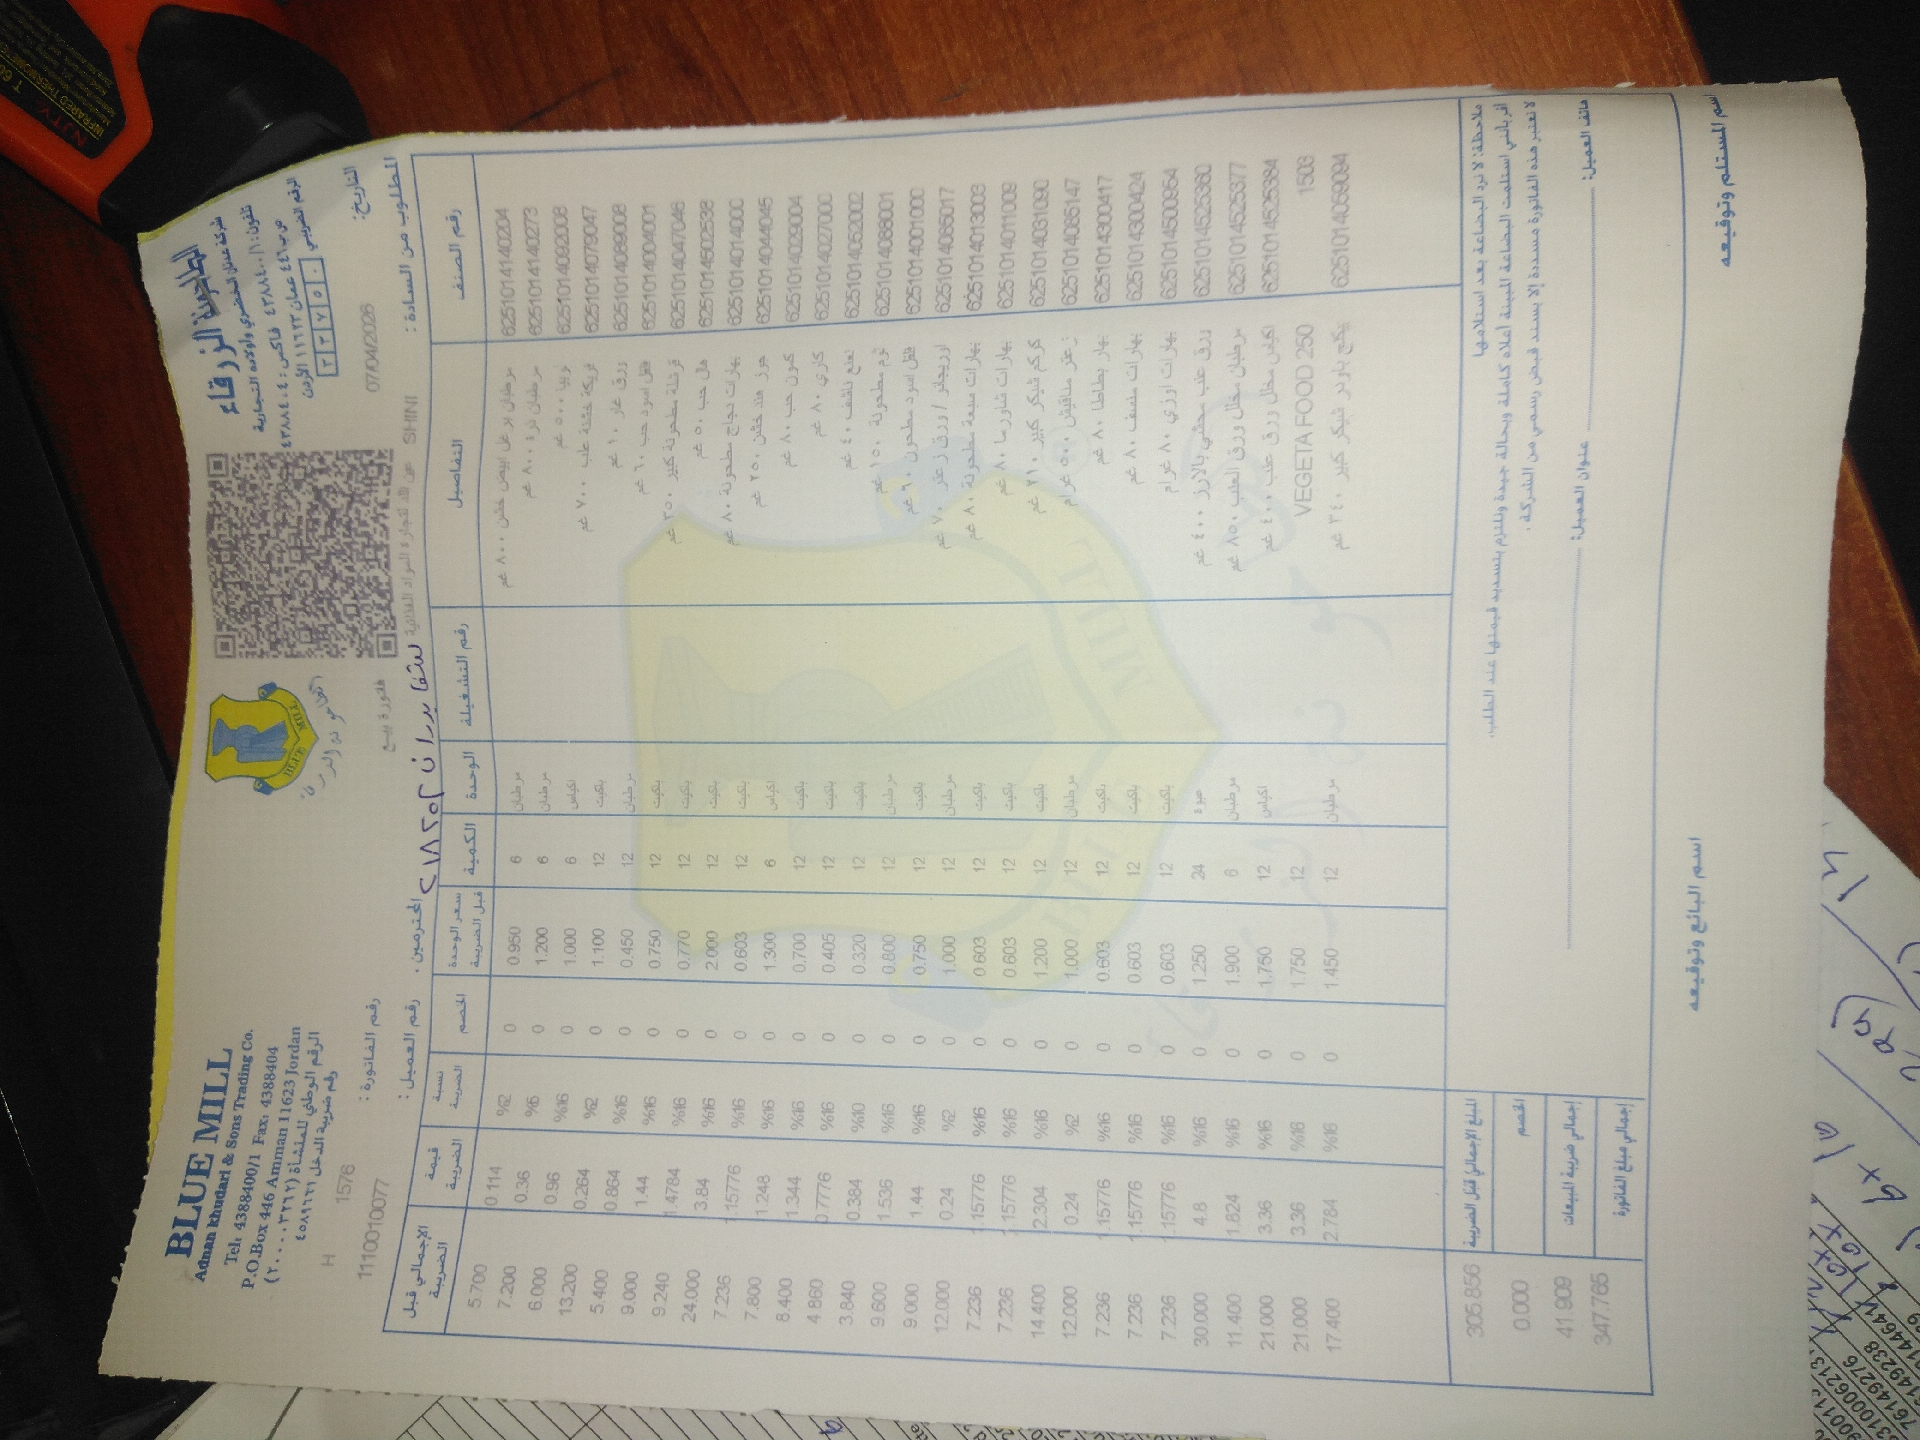 BLUE MILL
Adnan Khudari & Sons Trading Co.
Tel: 4388400/1 Fax: 4388404
P.O.Box 446 Amman 11623 Jordan
الرقم الوطني للمنشأة
رقم ضريبة الدخل
H 1576
الطاحونة الزرقاء
شركة عدنان الخضري وأولاده التجارية
تلفون: ٤٣٨٨٤٠٠/١ فاكس: ٤٣٨٨٤٠٤
ص.ب ٤٤٦ عمان ١١٦٢٣ الأردن
الرقم الضريبي
BLUE MILL
فاتورة بيع
رقم الفاتورة: 1110010077
التاريخ: 07/04/2026
المطلوب من السادة: SHINI
المحترمين.
رقم العميل:
رقم الصنف التفاصيل رقم التشغيلة الوحدة الكمية سعر الوحدة قبل الضريبة الخصم نسبة الضريبة قيمة الضريبة الإجمالي قبل الضريبة
6251014140204 مرطبان برغل ابيض خشن ٨٠٠ غم مرطبان 6 0.950 0 %2 0.114 5.700
6251014140273 مرطبان ذرة ٨٠٠ غم مرطبان 6 1.200 0 %5 0.36 7.200
6251014092008 لوبيا ٥٠٠ غم اكياس 6 1.000 0 %16 0.96 6.000
6251014079047 فريكة خشنة علب ٧٠٠ غم باكيت 12 1.100 0 %2 0.264 13.200
6251014089008 ورق غار ١٠ غم مرطبان 12 0.450 0 %16 0.864 5.400
6251014004001 فلفل اسود حب ٦٠ غم باكيت 12 0.750 0 %16 1.44 9.000
6251014047046 قرفة مطحونة كبير ٢٥٠ غم باكيت 12 0.770 0 %16 1.4784 9.240
6251014502538 هال حب ٥٠ غم باكيت 12 2.000 0 %16 3.84 24.000
6251014014000 بهارات دجاج مطحونة ٨٠ غم باكيت 12 0.603 0 %16 1.15776 7.236
6251014044045 جوز هند خشن ٢٥٠ غم اكياس 6 1.300 0 %16 1.248 7.800
6251014029004 كمون حب ٨٠ غم باكيت 12 0.700 0 %16 1.344 8.400
6251014027000 كاري ٨٠ غم باكيت 12 0.405 0 %16 0.7776 4.860
6251014052002 نعنع ناشف ٤٠ غم باكيت 12 0.320 0 %10 0.384 3.840
6251014088001 ثوم مطحونة ١٥٠ غم مرطبان 12 0.800 0 %16 1.536 9.600
6251014001000 فلفل اسود مطحون ٦٠ غم باكيت 12 0.750 0 %16 1.44 9.000
6251014085017 اوريجانو / ورق زعتر ٧٠ غم مرطبان 12 1.000 0 %2 0.24 12.000
6251014013003 بهارات سبعة مطحونة ٨٠ غم باكيت 12 0.603 0 %16 1.15776 7.236
6251014011009 بهارات شاورما ٨٠ غم باكيت 12 0.603 0 %16 1.15776 7.236
6251014031090 كركم شيكر كبير ٢١٠ غم باكيت 12 1.200 0 %16 2.304 14.400
6251014085147 زعتر مناقيش ٥٠٠ غرام مرطبان 12 1.000 0 %2 0.24 12.000
6251014300417 بهار بطاطا ٨٠ غم باكيت 12 0.603 0 %16 1.15776 7.236
6251014300424 بهارات منسف ٨٠ غم باكيت 12 0.603 0 %16 1.15776 7.236
6251014500954 بهارات اوزي ٨٠ غرام باكيت 12 0.603 0 %16 1.15776 7.236
6251014525360 ورق عنب محشي بالارز ٤٠٠ غم عبوة 24 1.250 0 %16 4.8 30.000
6251014525377 مرطبان مخلل ورق العنب ٨٥٠ غم مرطبان 6 1.900 0 %16 1.824 11.400
6251014525384 اكياس مخلل ورق عنب ٤٠٠ غم اكياس 12 1.750 0 %16 3.36 21.000
1503 VEGETA FOOD 250 12 1.750 0 %16 3.36 21.000
6251014059094 بيكنج باودر شيكر كبير ٢٤٠ غم مرطبان 12 1.450 0 %16 2.784 17.400
المبلغ الإجمالي قبل الضريبة 305.856
الخصم 0.000
إجمالي ضريبة المبيعات 41.909
إجمالي مبلغ الفاتورة 347.765
ملاحظة: لا ترد البضاعة بعد استلامها
أقر بأنني استلمت البضاعة المبينة أعلاه كاملة وبحالة جيدة وملتزم بتسديد قيمتها عند الطلب.
لا تعتبر هذه الفاتورة مسددة إلا بسند قبض رسمي من الشركة.
هاتف العميل: عنوان العميل:
اسم المستلم وتوقيعه
اسم البائع وتوقيعه
INFRARED THERMOMETER